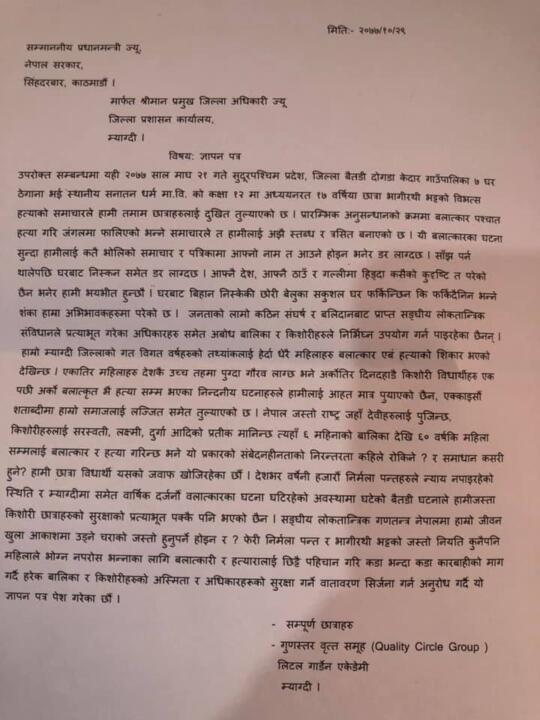 मिति:- २०७७/१०/२९
सम्माननीय प्रधानमन्त्री ज्यू,
नेपाल सरकार,
सिंहदरबार, काठमाडौं ।
मार्फत श्रीमान प्रमुख जिल्ला अधिकारी ज्यू
जिल्ला प्रशासन कार्यालय,
म्याग्दी ।
विषय: ज्ञापन पत्र
उपरोक्त सम्बन्धमा यही २०७७ साल माघ २१ गते सुदूरपश्चिम प्रदेश, जिल्ला बैतडी दोगडा केदार गाउँपालिका ७ घर
ठेगाना भई स्थानीय सनातन धर्म मा.वि. को कक्षा १२ मा अध्ययनरत १७ वर्षिया छात्रा भागीरथी भट्टको विभत्स
हत्याको समाचारले हामी तमाम छात्राहरुलाई दुखित तुल्याएको छ । प्रारम्भिक अनुसन्धानको क्रममा बलात्कार पश्चात
हत्या गरि जंगलमा फालिएको भन्ने समाचारले त हामीलाई अझै स्तब्ध र त्रसित बनाएको छ । यी बलात्कारका घटना
सुन्दा हामीलाई कतै भोलिको समाचार र पत्रिकामा आफ्नो नाम त आउने होइन भनेर डर लाग्दछ । साँझ पर्न
थालेपछि घरबाट निस्कन समेत डर लाग्दछ । आफ्नै देश, आफ्नै ठाउँ र गल्लीमा हिड्दा कसैको कुदृष्टि त परेको
छैन भनेर हामी भयभीत हुन्छौं । घरबाट बिहान निस्केकी छोरी बेलुका सकुशल घर फर्किन्छिन कि फर्किदैनिन भन्ने
शंका हाम्रा अभिभावकहरुमा परेको छ । जनताको लामो कठिन संघर्ष र बलिदानबाट प्राप्त सङ्घीय लोकतान्त्रिक
संविधानले प्रत्याभूत गरेका अधिकारहरु समेत अबोध बालिका र किशोरीहरुले निर्भिघ्न उपयोग गर्न पाइरहेका छैनन् ।
हाम्रो म्याग्दी जिल्लाको गत विगत वर्षहरुको तथ्यांकलाई हेर्दा धेरै महिलाहरु बलात्कार एबं हत्याको शिकार भएको
देखिन्छ । एकातिर महिलाहरु देशकै उच्च तहमा पुग्दा गौरव लाग्छ भने अर्कोतिर दिनदहाडै किशोरी विद्यार्थीहरु एक
पछी अर्को बलात्कृत भै हत्या सम्म भएका निन्दनीय घटनाहरुले हामीलाई आहत मात्र पुर्‍याएको छैन, एक्काइसौं
शताब्दीमा हाम्रो समाजलाई लज्जित समेत तुल्याएको छ । नेपाल जस्तो राष्ट्र जहाँ देवीहरुलाई पुजिन्छ,
किशोरीहरुलाई सरस्वती, लक्ष्मी, दुर्गा आदिको प्रतीक मानिन्छ त्यहाँ ६ महिनाको बालिका देखि ६० वर्षकि महिला
सम्मलाई बलात्कार र हत्या गरिन्छ भने यो प्रकारको संबेदनहीनताको निरन्तरता कहिले रोकिने ? र समाधान कसरी
हुने? हामी छात्रा विद्यार्थी यसको जवाफ खोजिरहेका छौं । देशभर वर्षेनी हजारौं निर्मला पन्तहरुले न्याय नपाइरहेको
स्थिति र म्याग्दीमा समेत वार्षिक दर्जनौं वलात्कारका घटना घटिरहेको अवस्थामा घटेको बैतडी घटनाले हामीजस्ता
किशोरी छात्राहरुको सुरक्षाको प्रत्याभूत पक्कै पनि भएको छैन । सङ्घीय लोकतान्त्रिक गणतन्त्र नेपालमा हाम्रो जीवन
खुला आकाशमा उड्ने चराको जस्तो हुनुपर्ने होइन र ? फेरी निर्मला पन्त र भागीरथी भट्टको जस्तो नियति कुनैपनि
महिलाले भोग्न नपरोस भन्नाका लागि बलात्कारी र हत्यारालाई छिट्टै पहिचान गरि कडा भन्दा कडा कारबाहीको माग
गर्दै हरेक बालिका र किशोरीहरुको अस्मिता र अधिकारहरूको सुरक्षा गर्ने वातावरण सिर्जना गर्न अनुरोध गर्दै यो
ज्ञापन पत्र पेश गरेका छौं ।
- सम्पूर्ण छात्राहरु
- गुणस्तर वृत्त समूह (Quality Circle Group )
लिटल गार्डेन एकेडेमी
म्याग्दी ।